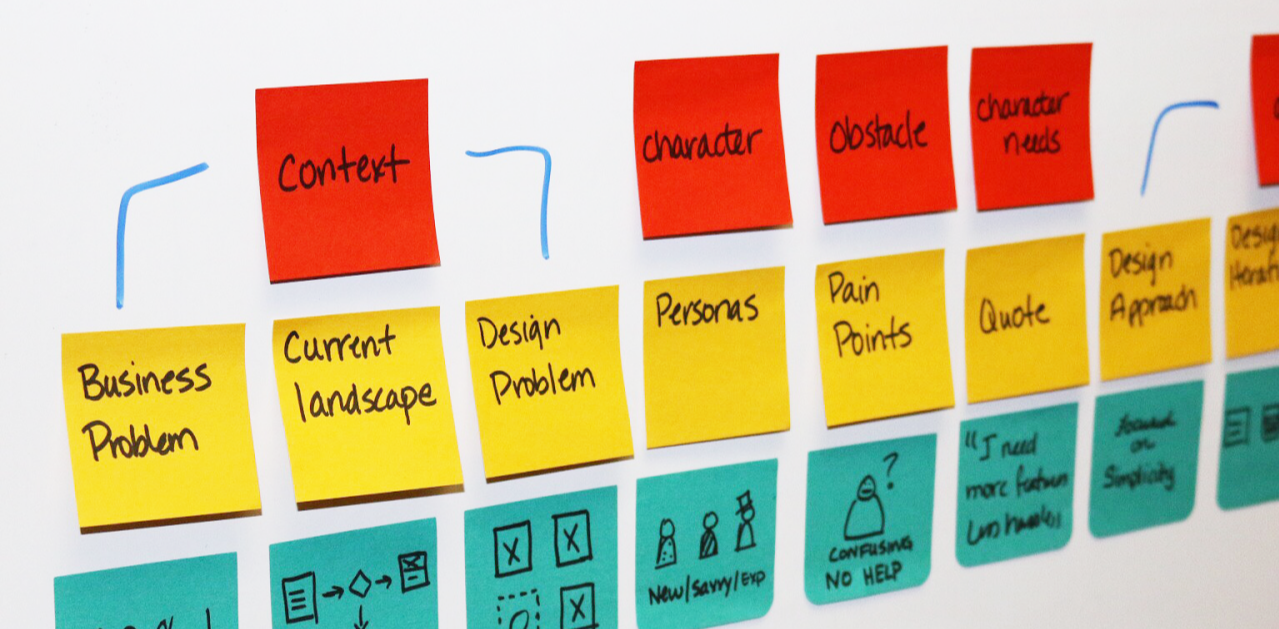 Context
character
Obstacle
character
needs
Business
Problem
Current
landscape
Design
Problem
Personas
Pain
Points
Quote
Design
Approach
X X
X
New/Savvy/Exp
?
CONFUSING
NO HELP
"I need
more features
Less hassles
Focused
on
Simplicity